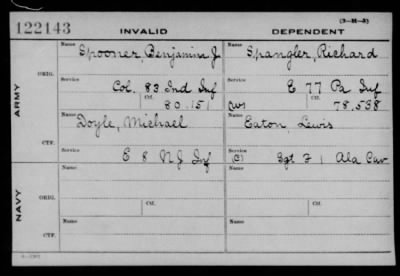 (3-M-3)
122143 INVALID DEPENDENT
ARMY
ORIG.
Name Spooner, Benjamin J. Name Spangler, Richard
Service Col. 83 Ind Inf Service E 77 Pa Inf
Ctf. 80.151 (W) Ctf. 78.538
CTF.
Name Doyle, Michael Name Eaton, Lewis
Service E 8 NJ Inf Service (C) Sgt F 1 Ala Cav
NAVY
ORIG.
Name Name
Ctf. Ctf.
CTF.
Name Name